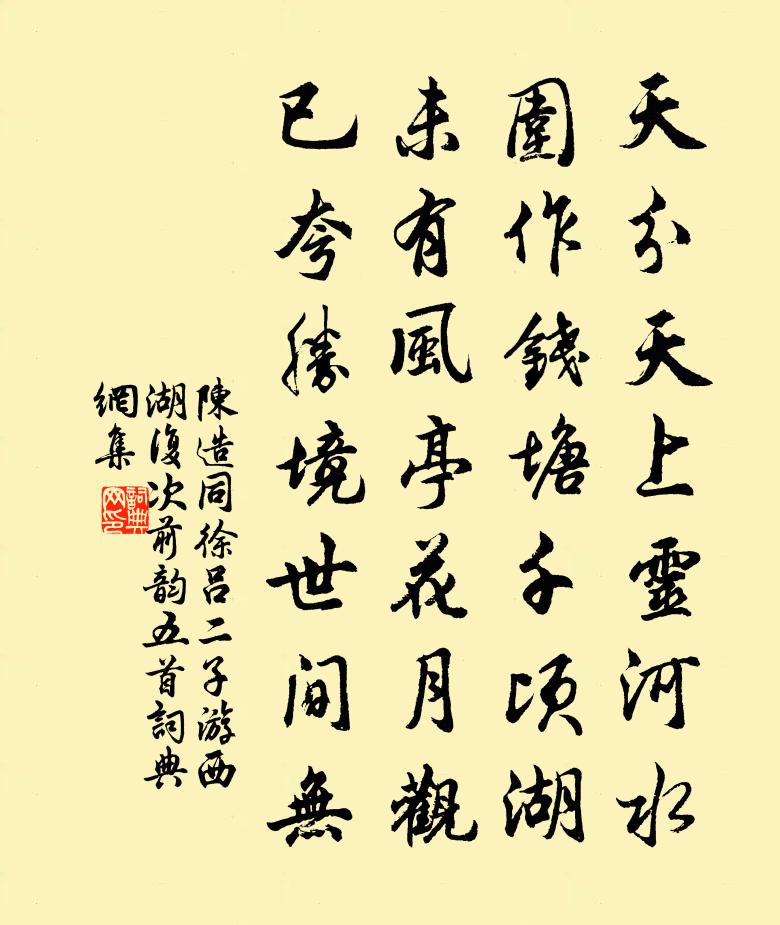 天分天上靈河水
圍作錢塘千頃湖
未有風亭花月觀
已夸勝境世間無
陳造同徐呂二子游西
湖復次前韵五首詞典
網集
詞典
网印